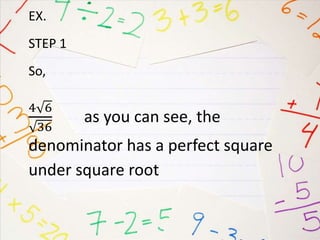 4 ÷ 2 = 2
3 + 3 = 6
6 =
EX.
STEP 1
So,
4√6
√36
as you can see, the
denominator has a perfect square
under square root
+ 1
4
10
- 5
5
× 5 = 20
7 - 2 = 5
9 - 3